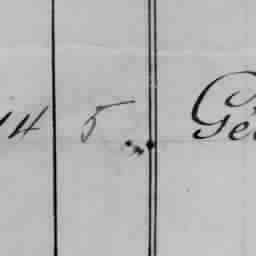 14 5 Ge